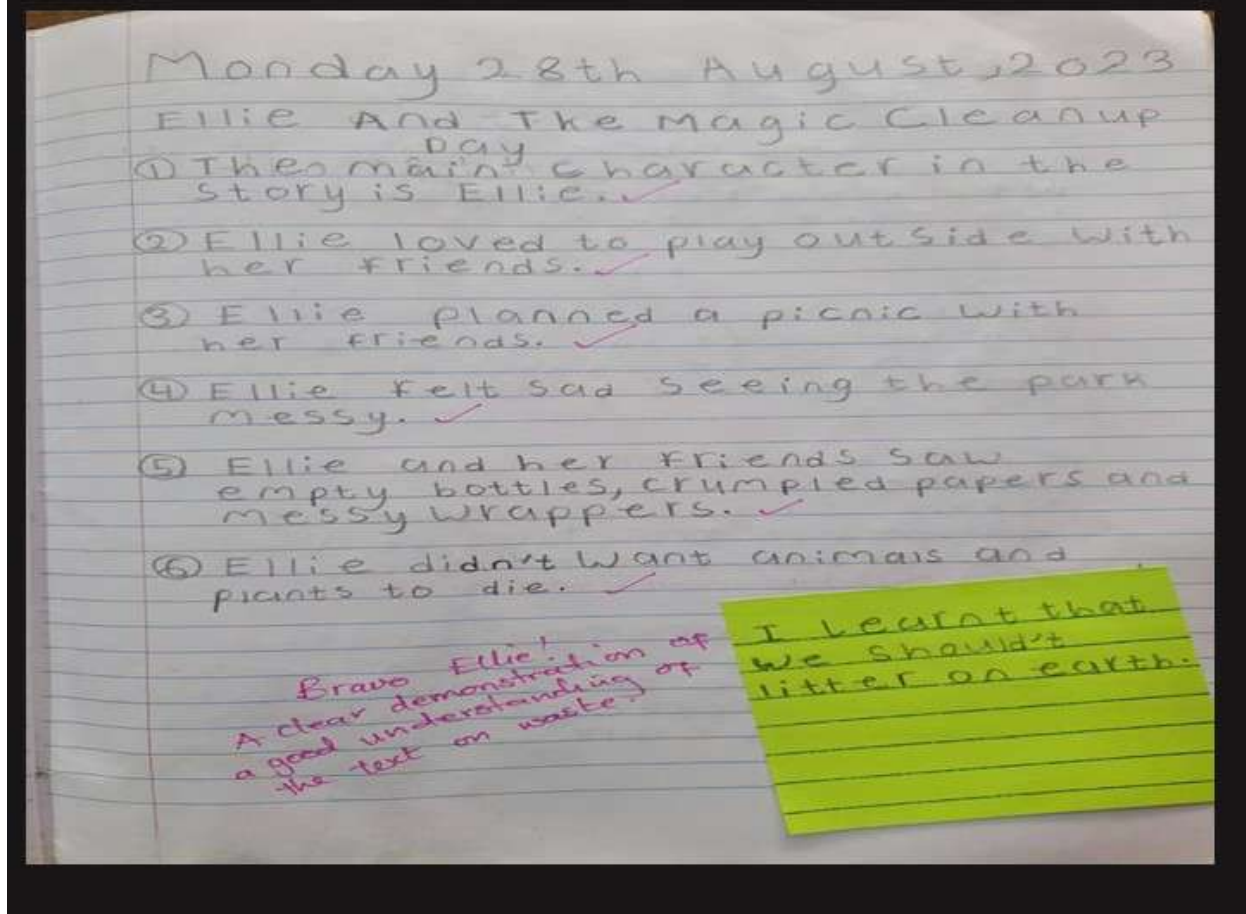 Monday 28th August, 2023
Ellie And The Magic Cleanup
Day
① The main character in the
story is Ellie.
② Ellie loved to play outside with
her friends.
③ Ellie planned a picnic with
her friends.
④ Ellie felt sad seeing the park
messy.
⑤ Ellie and her friends saw
empty bottles, crumpled papers and
messy wrappers.
⑥ Ellie didn't want animals and
plants to die.
Bravo Ellie!
A clear demonstration of
a good understanding of
the text on waste.
I Learnt that
we should't
litter on earth.